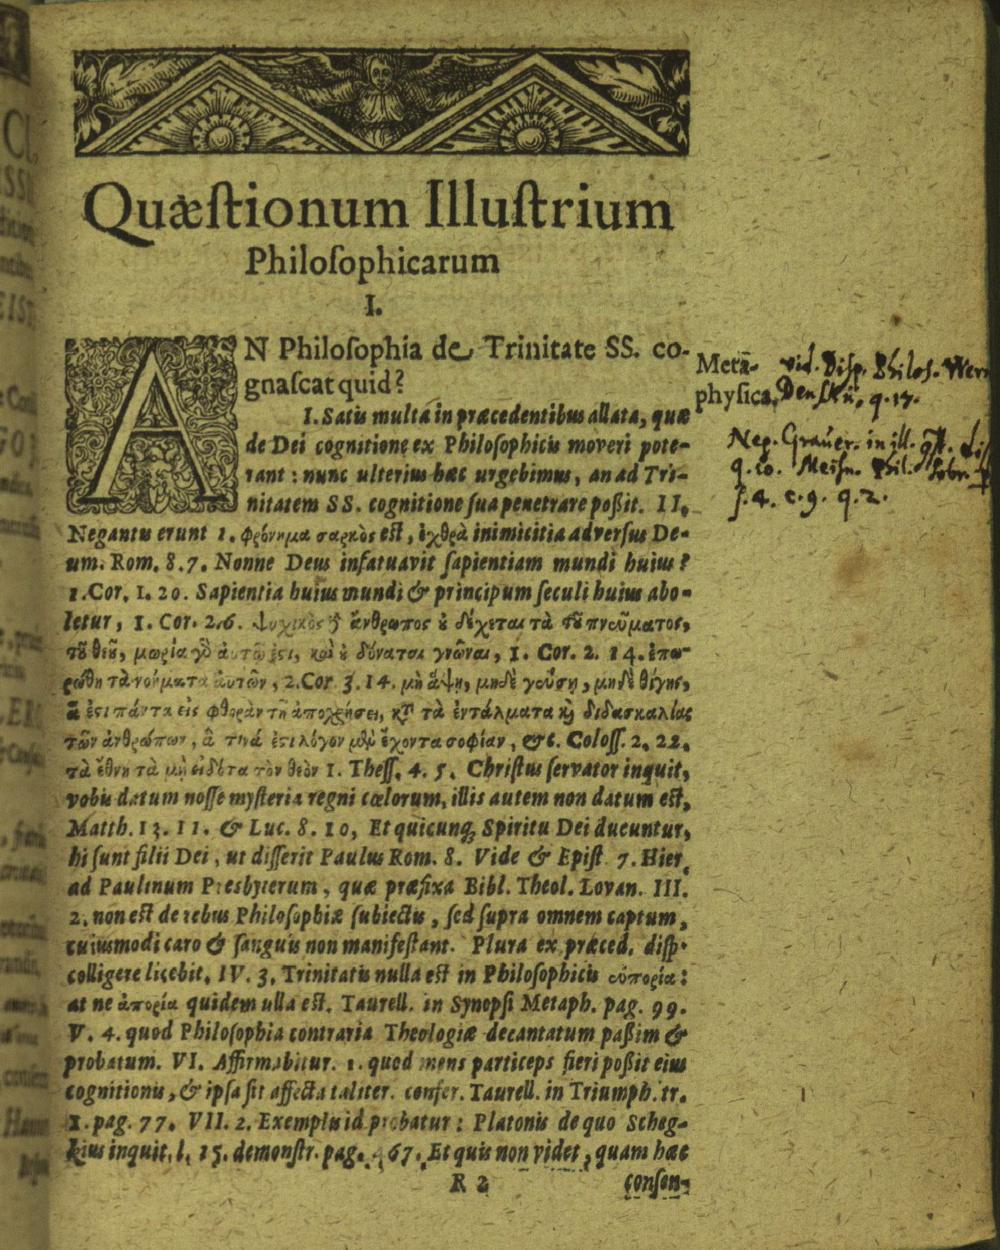 Quæſtionum Illuſtrium
Philoſophicarum
I.
AN Philoſophia de Trinitate SS. co-
gnaſcat quid?
Meta-
phyſica.
vid. Diſp. Philoſ.
q. 17.
Neg. Graver. in ill.
q. 10. Meiſn. Phil. Sobr.
ſ. 4. c. 9. q. 2.
I. Satis multa in præcedentibus allata, quæ
de Dei cognitione ex Philoſophicis moveri pote-
rant: nunc ulterius hæc urgebimus, an ad Tri-
nitatem SS. cognitione ſua penetrare poßit. II.
Negantis erunt 1. φρόνημα σαρκὸς eſt, ἐχθρὰ inimicitia adverſus De-
um. Rom. 8. 7. Nonne Deus infatuavit ſapientiam mundi huius?
1. Cor. 1. 20. Sapientia huius mundi & principum ſeculi huius abo-
letur, 1. Cor. 2. 6. ψυχικὸς δ ἄνθρωπος ȣ δέχεται τὰ τȣ͂ πνεύματος,
τȣ͂ θεȣ͂, μωρία γὸ αυτῶ ἐςι, καὶ ȣ δύναται γνῶναι, 1. Cor. 2. 14. ἐπω-
ρώθη τὰ νοήματα ἀυτῶν, 2. Cor. 3. 14. μὴ ἅψη, μηδὲ γεύση, μηδὲ θίγης,
ἅ ἐςι πάντα εἰς φθορὰν τῆ ἀποχρήσει, κτ τὰ ἐντάλματα κὶ διδασκαλίας
τῶν ἀνθρώπων, ἅ τινά ἐςι λόγον μὲν ἔχοντα σοφίαν, &c. Coloſſ. 2. 22.
τὰ ἔθνη τὰ μὴ εἰδότα τὸν θεὸν 1. Theſſ. 4. 5. Chriſtus ſervator inquit,
vobis datum noſſe myſteria regni cœlorum, illis autem non datum eſt,
Matth. 13. 11. & Luc. 8. 10, Et quicunq; Spiritu Dei ducuntur,
hi ſunt filii Dei, ut diſſerit Paulus Rom. 8. Vide & Epiſt. 7. Hier.
ad Paulinum Presbyterum, quæ præfixa Bibl. Theol. Lovan. III.
2. non eſt de rebus Philoſophiæ ſubiectis, ſed ſupra omnem captum,
cuiusmodi caro & ſanguis non manifeſtant. Plura ex præced. diſp.
colligere licebit. IV. 3. Trinitatis nulla eſt in Philoſophicis εὐπορία:
at ne ἀπορία quidem ulla eſt. Taurell. in Synopſi Metaph. pag. 99.
V. 4. quod Philoſophia contraria Theologiæ decantatum paßim &
probatum. VI. Affirmabitur. 1. quod mens particeps fieri poßit eius
cognitionis, & ipſa ſit affecta taliter. confer. Taurell. in Triumph. tr.
1. pag. 77. VII. 2. Exemplis id probatur: Platonis de quo Scheg-
kius inquit, l. 15. demonſtr. pag. 467. Et quis non videt, quam hæc
R 2 conſen-